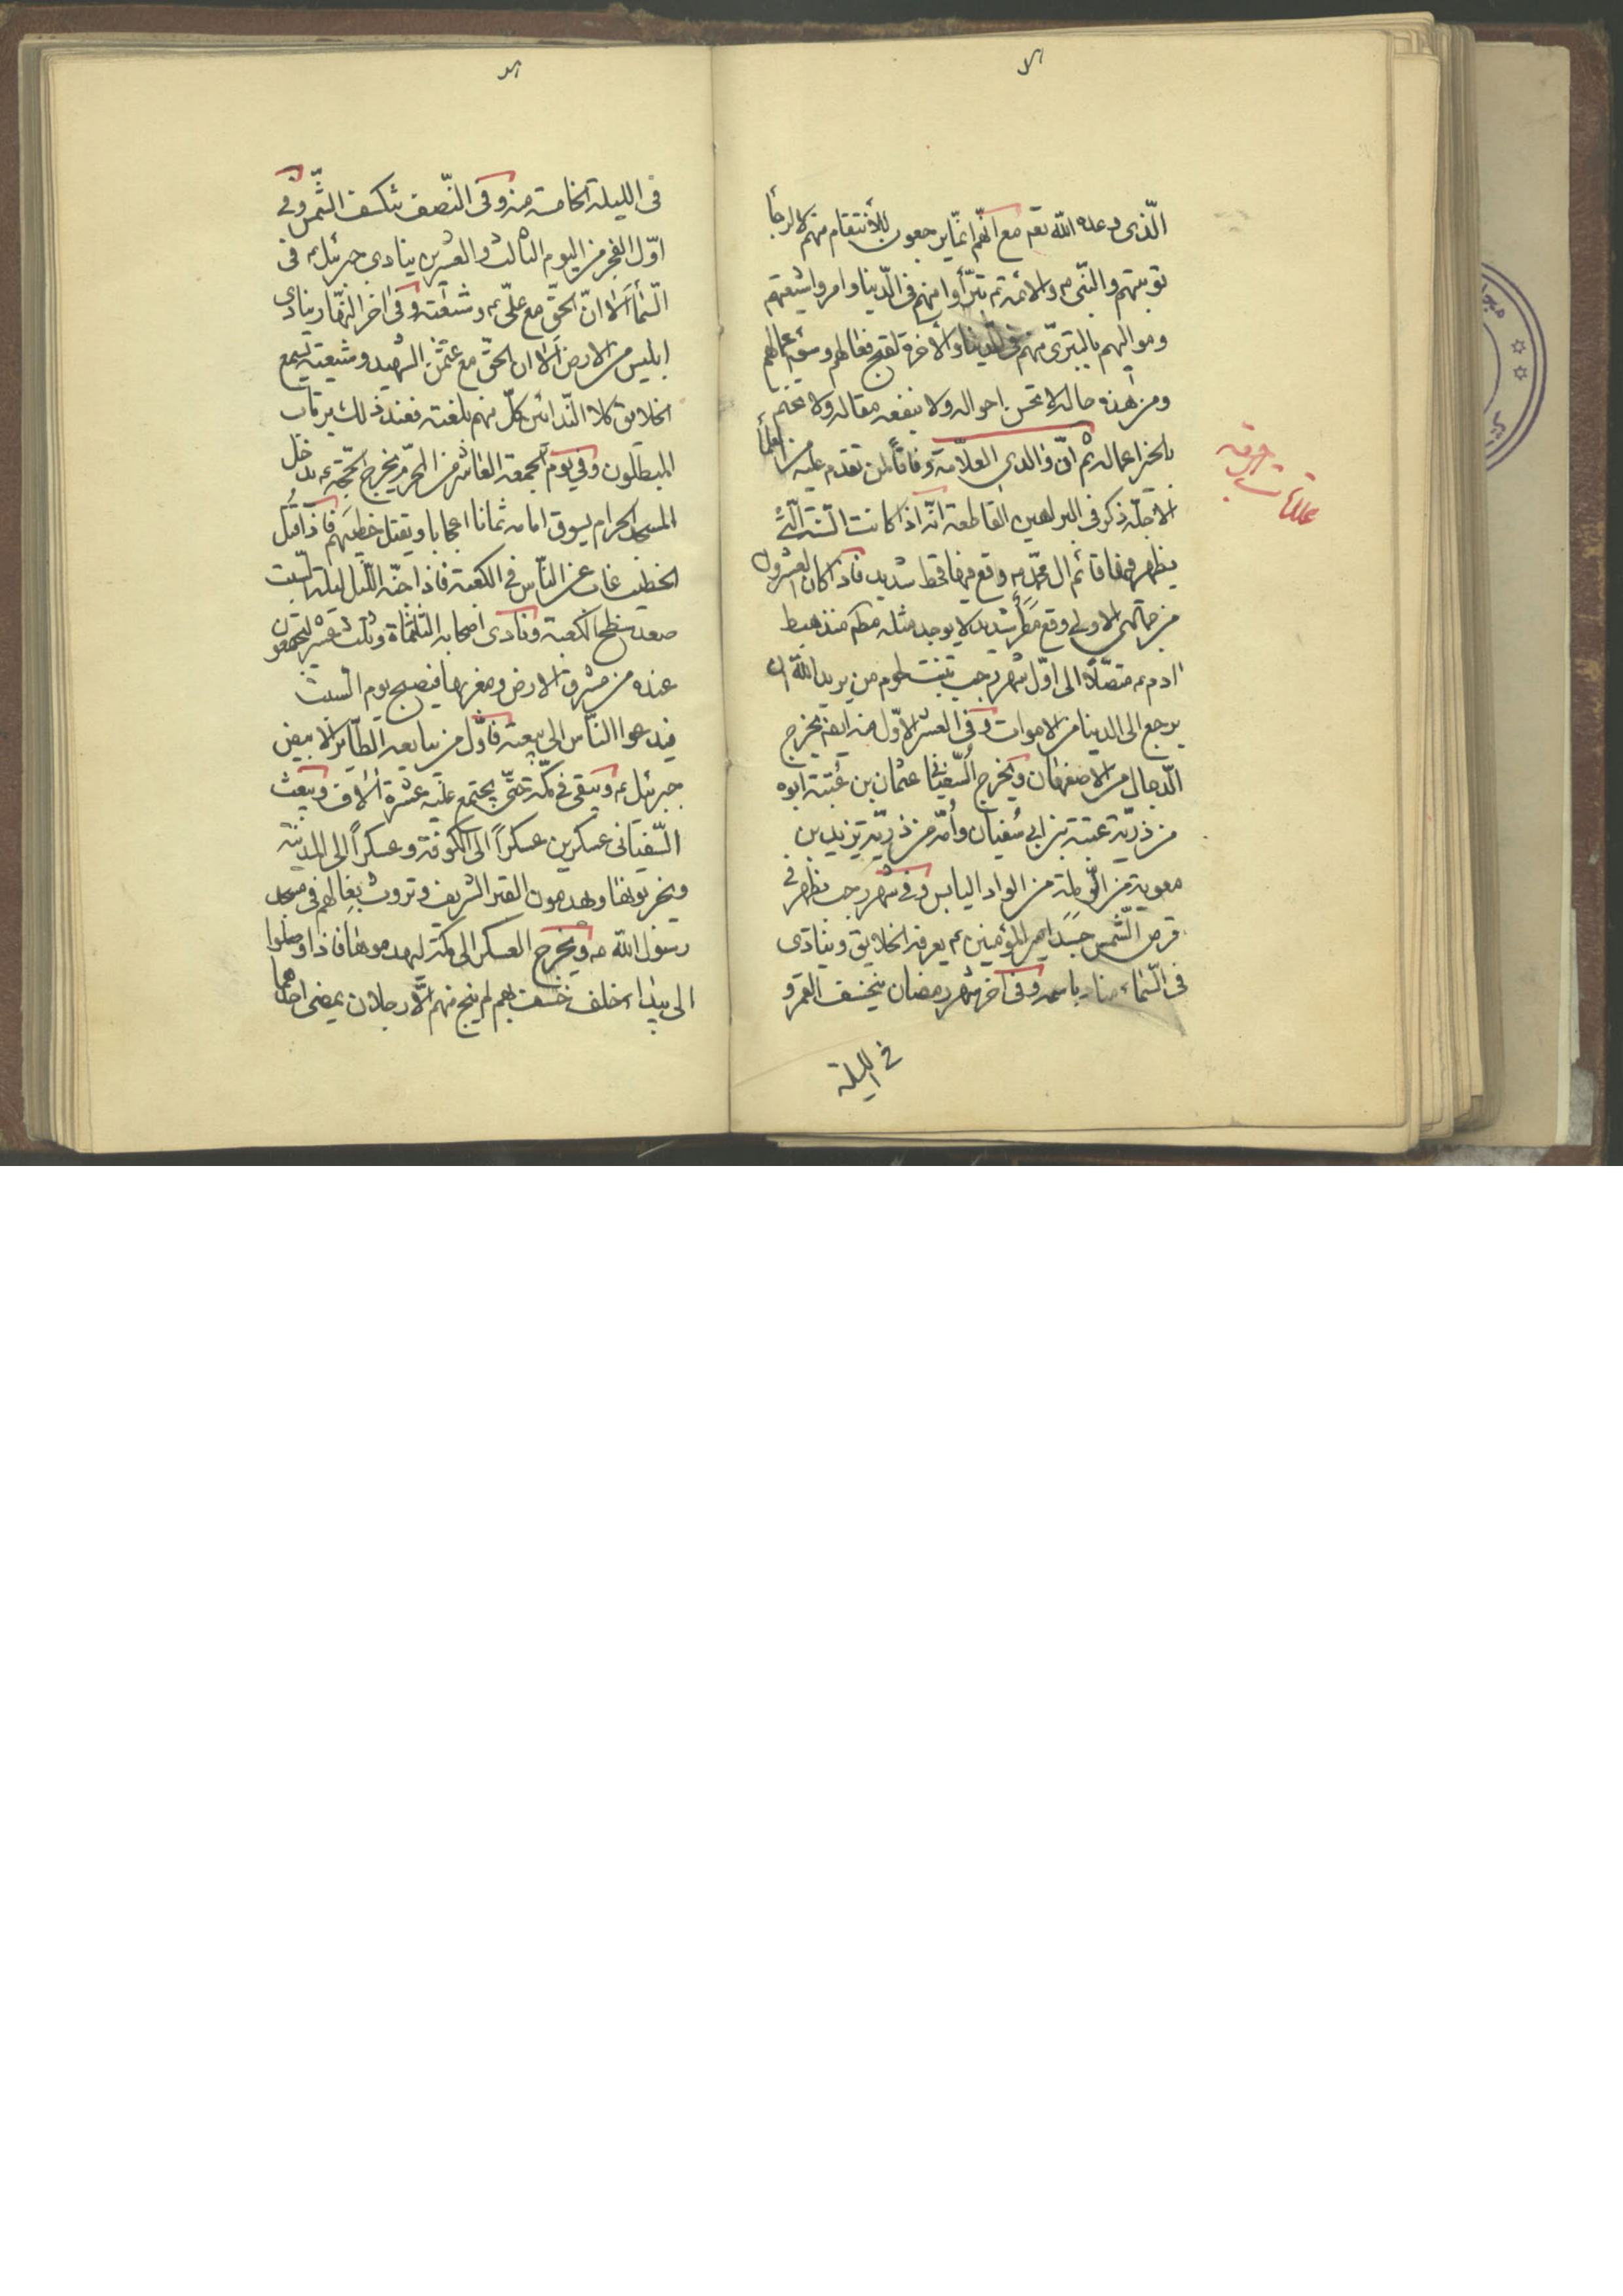 الّذى وعده الله تعم مع انّهم انّما يرجعون للأنتقام منهم لا لرجأ
توبتهم والنّبى ص والائمة ع تبرّأوا منهم فى الدّينا وامروا شيعتهم
ومواليهم بالتبرّى منهم فى الدّينا والأخرة لقبح فعالهم وسوء اعمالهم
ومن هذه حاله لا تحسن احواله ولا ينفعه مقاله ولا يختم
بالخير اعماله ثم انّ والدى العلّامة وفاقاً لمن تقدم عليه من العلمأ
الأجلّة ذكر فى البراهين القاطعة انّه اذا كانت السّنة الّتى
يظهر فيها قائم ال محمّد ص وقع فيها قحط شديد فاذا كان العشرون
من جمادى الاولى وقع مَطَر شديد لا يوجد مثله مطر منذ هبط
ادم ع متصّلاً الى اوّل شهر رجب تنبت لحوم من يريد الله ان
يرجع الى الدينا من الاموات وفى العشر الاوّل منه ايضا يخرج
الدّجال من الاصفهان ويخرج السّفيانى عثمان بن عُتبة ابوه
من ذريّة عتبة بن ابى سُفيان وأمّه من ذريّة يزيد بن
معوية من الرّملة من الواد اليابس وفى شهر رجب يظهر فى
قرص الشّمس جَسَد امير المؤمنين ع يعرفه الخلايق وينادى
فى السّماء مناد باسمه وفى اخر شهر رمضان ينخسف القمر و
فى الليلة
علامات
فى الليلة الخامسة منه وفى النّصف تنكسف الشّمس وفى
اوّل الفجر من اليوم الثالث والعشرين ينادى جبرئيل ع فى
السّمأ ألا انّ الحقّ مع علىّ ع وشيعته وفى اخر النّهار ينادى
ابليس من الارض ألا ان الحقّ مع عثمن الشهيد وشيعته يسمع
الخلايق كلا النّدائين كلّ منهم بلغته فعند ذلك يرتاب
المبطلون وفى يوم الجمعة العاشر من المحرّم يخرج الحجّة ع يدخل
المسجد الحرام يسوق امامه ثمانا اعجافا ويقتل خطيبهم فاذا قُتل
الخطيب غاب عن النّاس فى الكعبة فاذا جنّه اللّيل ليلة السّبت
صعد سطح الكعبة ونادى اصحابه الثلثمأة وثلث عشر ليجتمعون
عنده من مشرق الارض ومغربها فيصبح يوم السّبت
فيدعوا النّاس الى بيعته فأوّل من يبايعه الطّاير الابيض
جبرئيل ع ويبقى فى مكّة حتّى يجتمع عليه عشرة ألاف ويبعث
السّفيانى عسكرين عسكراً الى الكوفة وعسكراً الى المدينة
ويخربونها ويهدمون القبر الشريف وتروث بغالهم فى مسجد
رسول الله ص ويخرج العسكر الى مكة ليهدموها فاذا وصلوا
الى بيداء خلف خسف بهم لم ينج منهم الّا رجلان يمضى احدهما